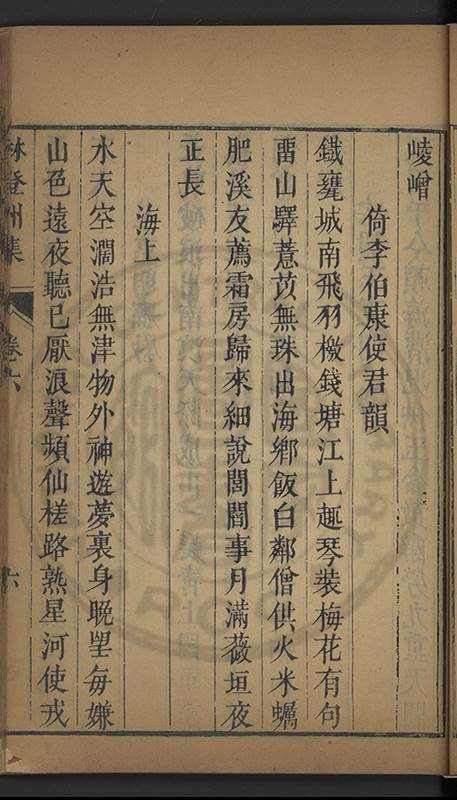 崚嶒
倚李伯康使君韻
鐵甕城南飛羽檄錢塘江上趣琴裝梅花有句
畱山驛薏苡無珠出海鄉飯白鄰僧供火米蠣
肥溪友薦霜房歸來細說閭閻事月滿薇垣夜
正長
海上
水天空濶浩無津物外神遊夢裏身晚朢每嫌
山色遠夜聽已厭浪聲頻仙槎路熟星河使戎
林登州集
卷六
六